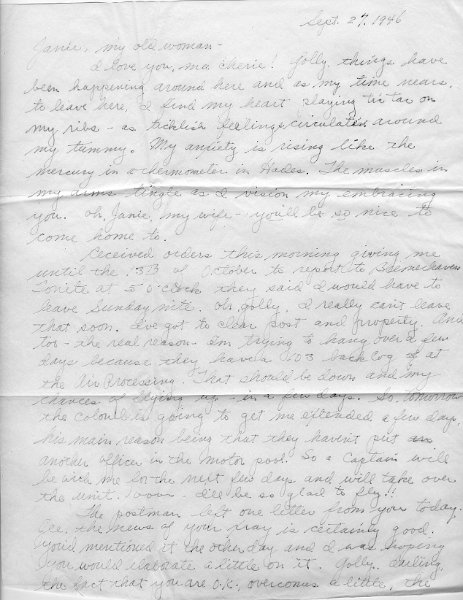 Sept. 27, 1946
Janie, my old woman -
I love you, ma cherie! Golly, things have
been happening around here and as my time nears
to leave here, I find my heart playing tic tac on
my ribs - as ticklish feelings circulates around
my tummy. My anxiety is rising like the
mercury in a thermometer in Hades. The muscles in
my arms tingle as I vision my embracing
you. Oh, Janie, my wife - you'll be so nice to
come home to.
Received orders this morning giving me
until the 3rd of October to report to
Tonite at 5 o'clock they said I would have to
leave Sunday nite. Oh, golly, I really can't leave
that soon. I've got to clear post and property. And
too - the real reason - I'm trying to hang over a few
days because they have a 603 back log of at
the Air Processing. That should be down and my
chances of flying up - in a few days. So, tomorrow
the colonel is going to get me extended a few days,
his main reason being that they haven't put an
another officer in the motor pool. So a Captain will
be with me for the next few days and will take over
the unit. - I'll be so glad to fly!!
The postman left one letter from you today.
Gee, the news of your xray is certainly good.
You'd mentioned it the other day and I was hoping
you would elaborate a little on it. Golly, darling,
the fact that you are O.K. overcomes a little, the